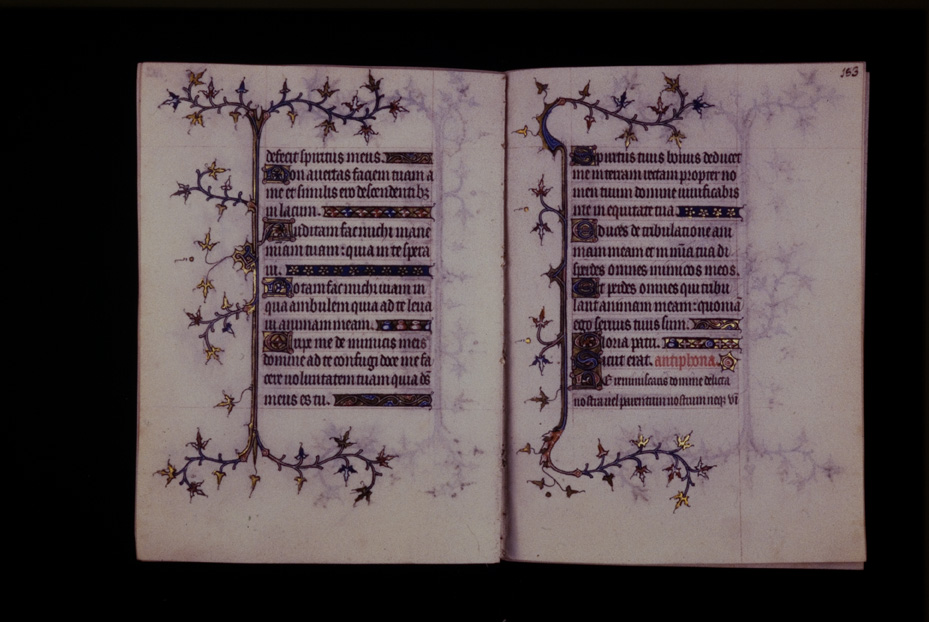 defecit spiritus meus.
Non auertas faciem tuam a
me et similis ero descendentibz
in lacum.
Auditam fac michi mane
miam tuam: quia in te spera
ui.
Notam fac michi uiam in
qua ambulem quia ad te leua
ui animam meam.
Eripe me de inimicis meis
domine ad te confugi doce me fa
cere uoluntatem tuam quia ds
meus es tu.
153
Spiritus tuus bonus deducet
me in terram rectam propter no
men tuum domine uiuificabis
me in equitate tua.
Educes de tribulatione ani
mam meam et in mia tua di
sperdes omnes inimicos meos.
Et perdes omnes qui tribu
lant animam meam: quoniam
ego seruus tuus sum.
Gloria patri.
Sicut erat. antiphona.
Ne reminiscaris domine delicta
nostra uel parentum nostrorum neqz vi